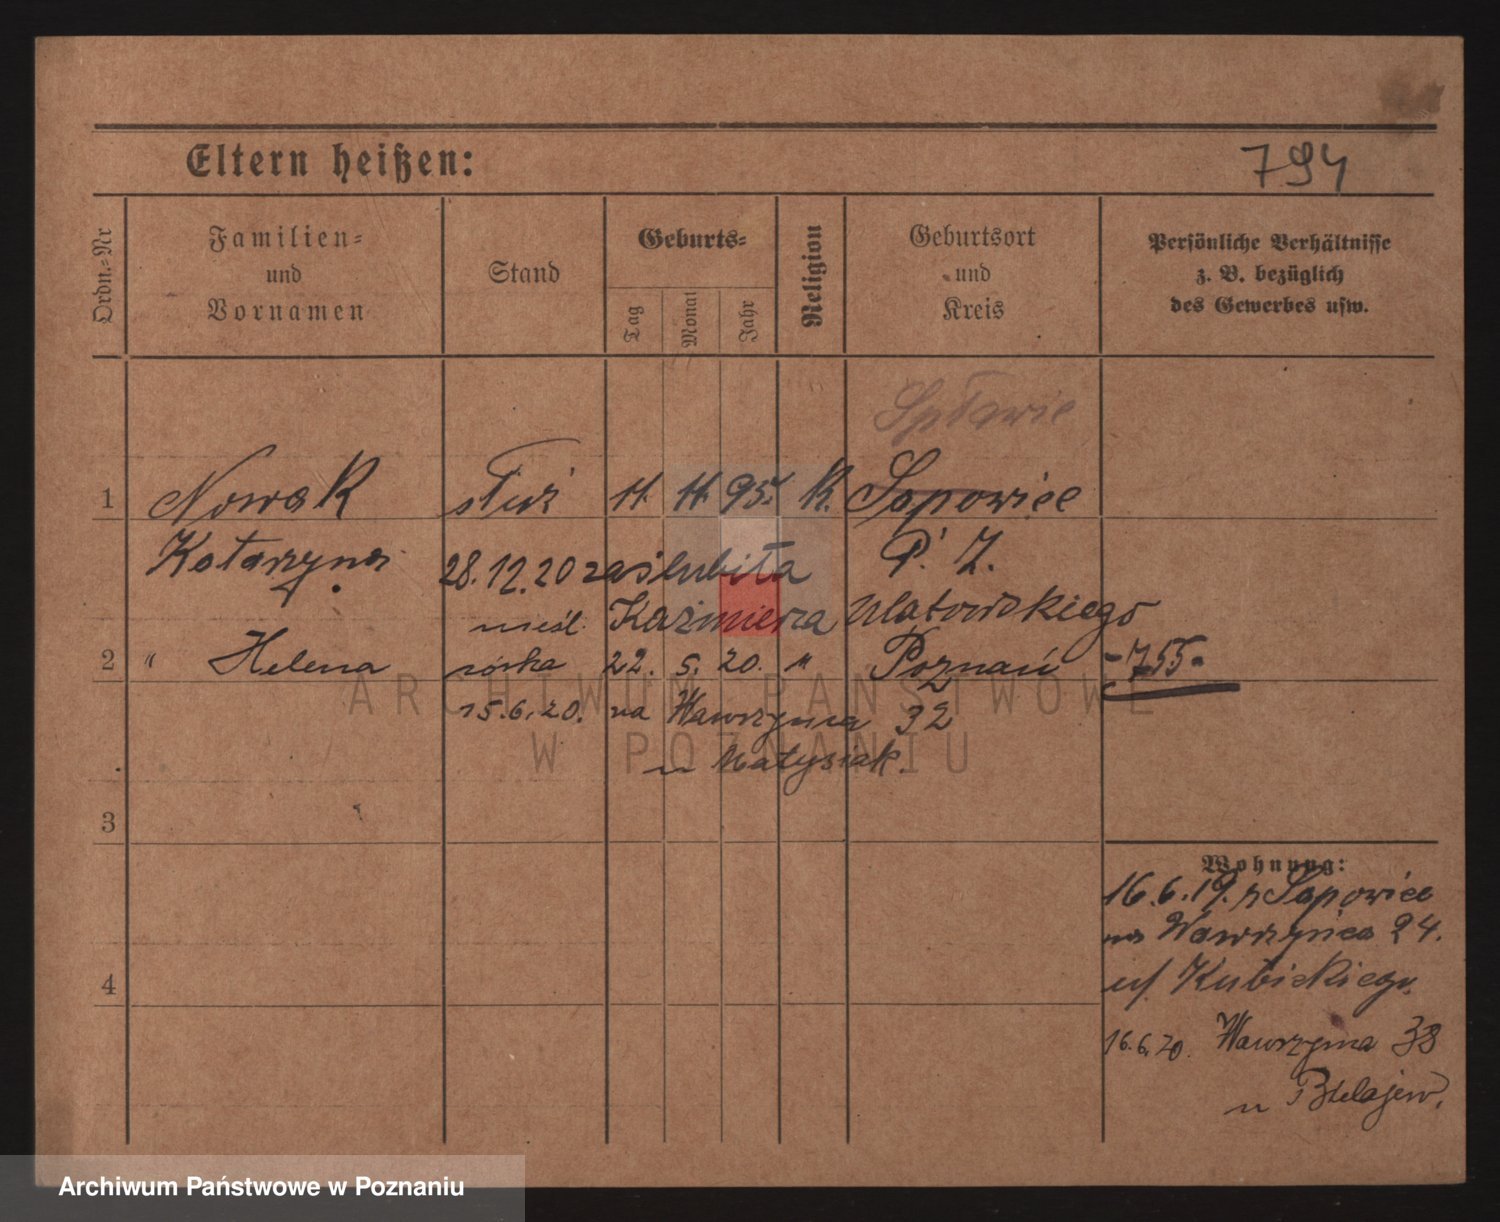 Eltern heißen:
794
Ordn.=Nr
Familien=
und
Vornamen
Stand
Geburts=
Tag
Monat
Jahr
Religion
Geburtsort
und
Kreis
Persönliche Verhältnisse
z. B. bezüglich
des Gewerbes usw.
Spławie
1 Nowak służ 11. 11. 95. K. Sapowice
Katarzyna 28.12.20 zaślubiła P. Z.
nieśl. Kaźmierza Ulatowskiego
2 " Helena córka 22. 5. 20. " Poznań -755-
15.6.20. na Wawrzyńca 32
u Matysiak.
3
Wohnung:
16.6.19. z Sapowice
na Wawrzyńca 24.
u/ Kubickiego.
4
16.6.20. Wawrzyńca 38
u Bielajew.
ARCHIWUM PAŃSTWOWE
W POZNANIU
Archiwum Państwowe w Poznaniu